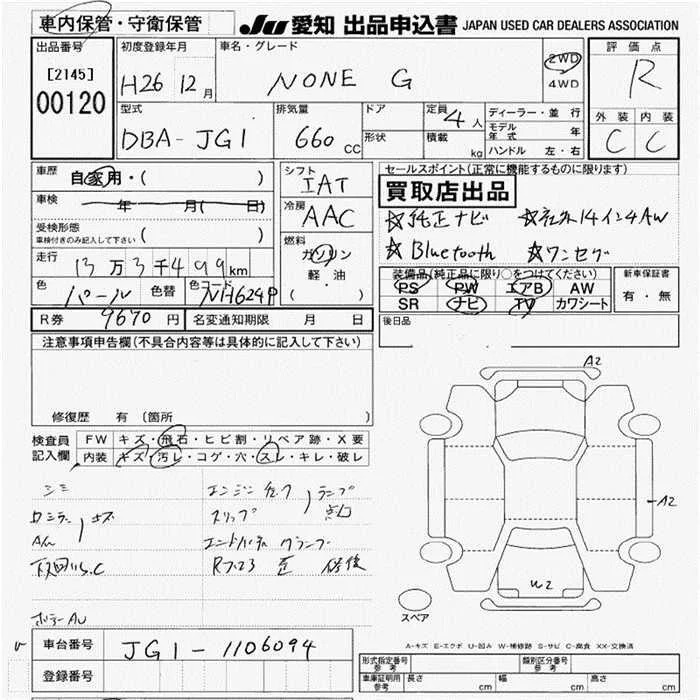 車内保管・守衛保管
JU 愛知 出品申込書 JAPAN USED CAR DEALERS ASSOCIATION
出品番号
[2145]
00120
初度登録年月
H26 12月
車名・グレード
NONE G
2WD
4WD
評価点
R
外装 内装
C C
型式
DBA-JG1
排気量
660 CC
ドア
形状
定員 4人
積載 kg
ディーラー・並行
モデル年式 年
ハンドル 左・右
車歴 自家用・( )
車検 年 月( 日)
受検形態
車検付きのみ記入して下さい ( )
走行 13万3千499km
色 パール 色替 色コード NH624P
シフト
IAT
冷房
AAC
燃料
ガソリン
軽・油
( ・ )
セールスポイント(正常に機能するものに限ります)
買取店出品
☆純正ナビ ☆社外14インチAW
☆Bluetooth ☆ワンセグ
装備品(純正品に限り○をつけてください)
PS PW エアB AW
SR ナビ TV カワシート
新車保証書
有・無
後日品
R券 9670円 名変通知期限 月 日
注意事項申告欄(不具合内容等は具体的に記入して下さい)
修復歴 有 (箇所
検査員記入欄
FW キズ・飛石・ヒビ割・リペア跡・X要
内装 キズ・汚レ・コゲ・穴・スレ・キレ・破レ
シミ
キズ
エンジンチェック
ランプ
スリップ
点灯
修復
A2
A2
W2
スペア
A-キズ E-エクボ U-凹み W-補修跡 S-サビ C-腐食 XX-交換済
車台番号 JG1-1106094
登録番号
形式指定番号 参考
類別区分番号 参考
車庫証明用 参考 長さ cm 幅 cm 高さ cm